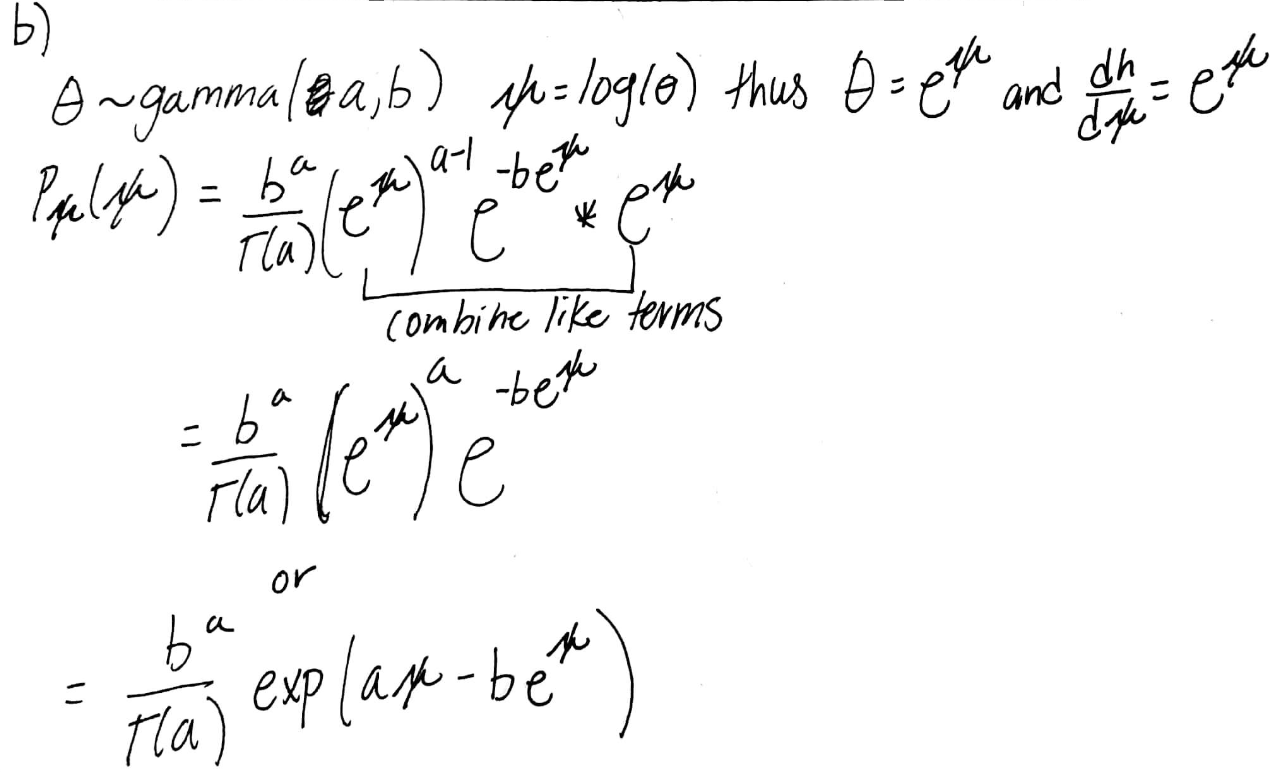 b)
θ ~ gamma(a, b) ψ = log(θ) thus θ = e^ψ and dh/dψ = e^ψ
P_ψ(ψ) = b^a/Γ(a) (e^ψ)^(a-1) e^(-be^ψ) * e^ψ
combine like terms
= b^a/Γ(a) (e^ψ)^a e^(-be^ψ)
or
= b^a/Γ(a) exp(aψ - be^ψ)